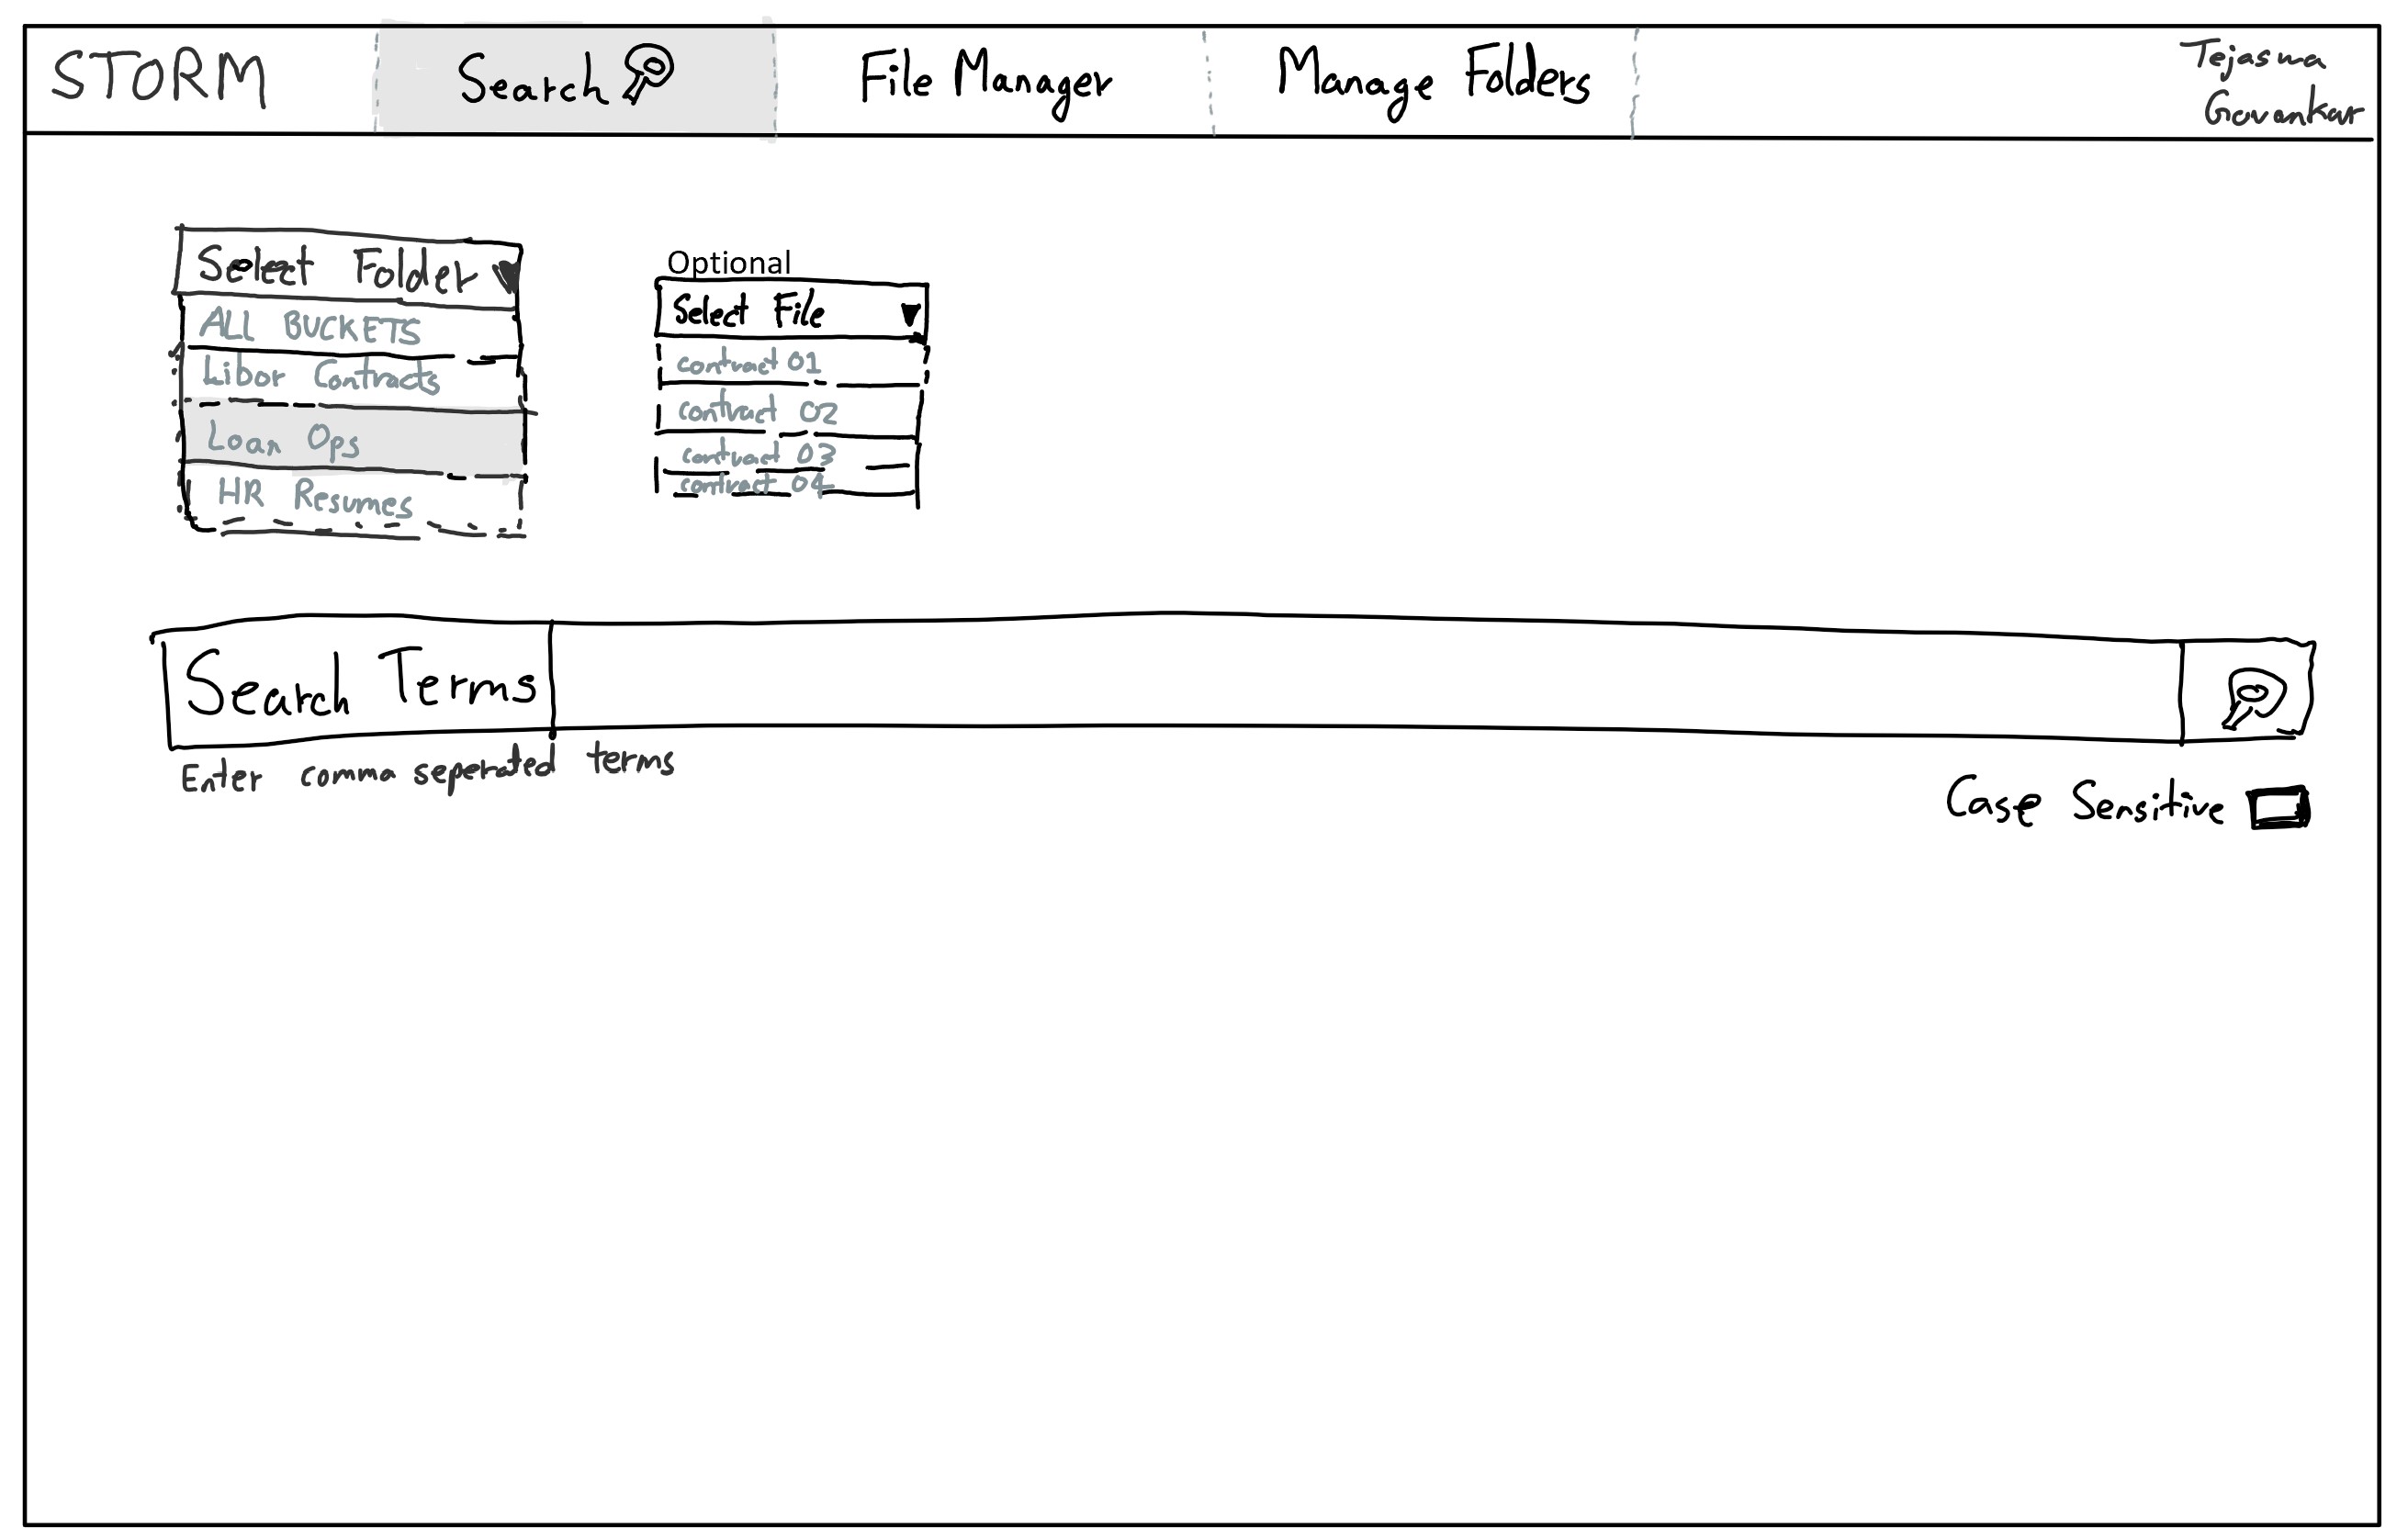 STORM
Search
File Manager
Manage Folders
Tejasma
Govankar
Select Folder
ALL BUCKETS
Libor Contracts
Loan Ops
HR Resumes
Optional
Select File
contract 01
contract 02
contract 03
contract 04
Search Terms
Enter comma seperated terms
Case Sensitive